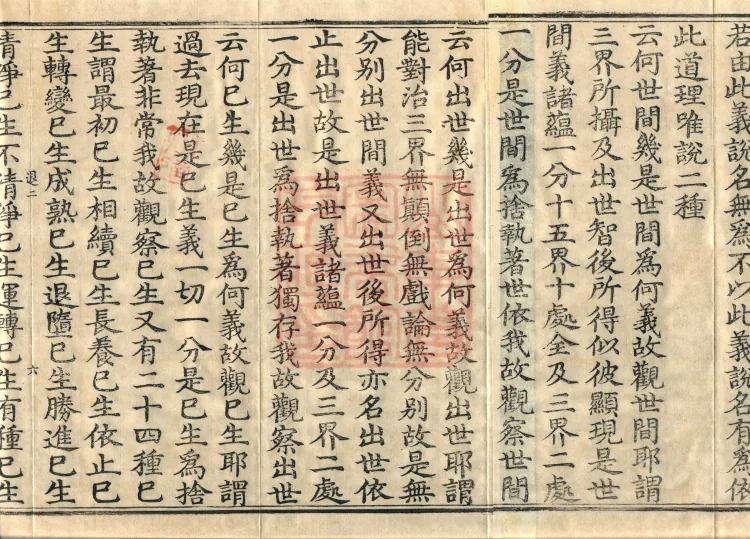 若由此義說名無爲不以此義說名有爲依
此道理唯說二種
云何世間幾是世間爲何義故觀世間耶謂
三界所攝及出世智後所得似彼顯現是世
間義諸蘊一分十五界十處全及三界二處
一分是世間爲捨執著世依我故觀察世間
云何出世幾是出世爲何義故觀出世耶謂
能對治三界無顛倒無戲論無分別故是無
分別出世間義又出世後所得亦名出世依
止出世故是出世義諸蘊一分及三界二處
一分是出世爲捨執著獨存我故觀察出世
云何已生幾是已生爲何義故觀已生耶謂
過去現在是已生義一切一分是已生爲捨
執著非常我故觀察已生又有二十四種已
生謂最初已生相續已生長養已生依止已
生轉變已生成熟已生退墮已生勝進已生
清淨已生不清淨已生運轉已生有種已生
退二
六